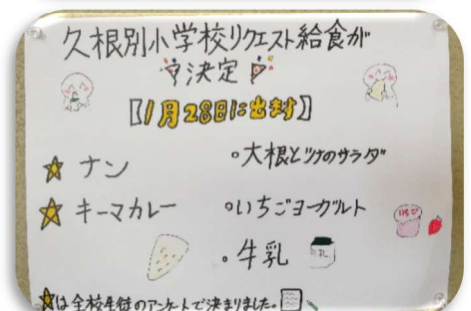 久根別小学校リクエスト給食が
決定
【1月28日に出ます】
☆ ナン
☆ キーマカレー
・大根とツナのサラダ
・いちごヨーグルト
いちご
・牛乳
☆は全校生徒のアンケートで決まりました。